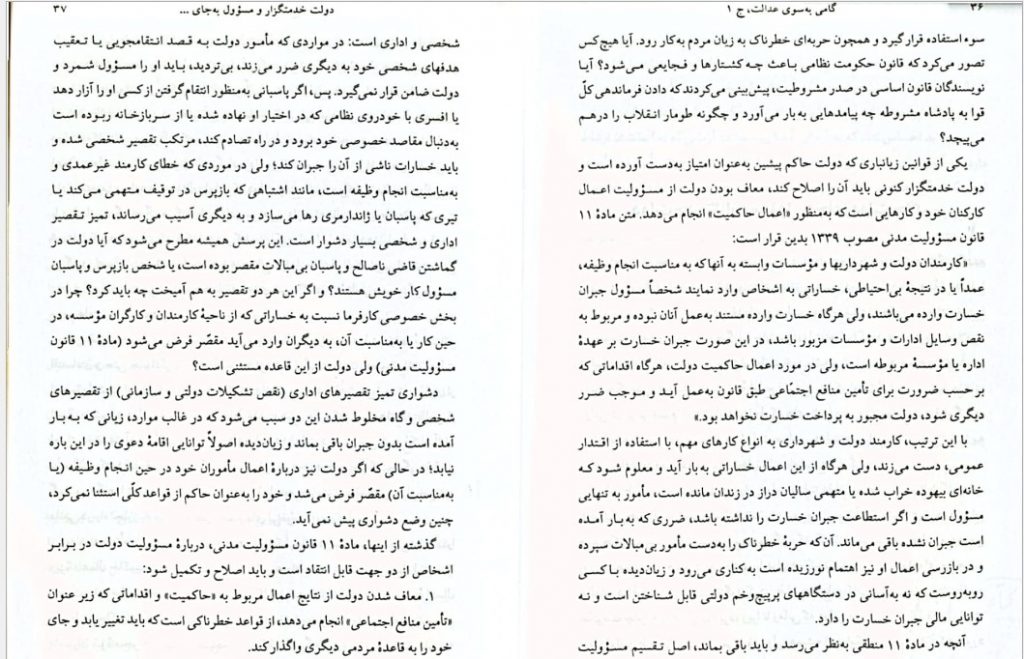 ۳۶ گامی به‌سوی عدالت، ج ۱
سوءاستفاده قرار گیرد و همچون حربه‌ای خطرناک به زیان مردم به‌کار رود. آیا هیچ‌کس
تصور می‌کرد که قانون حکومت نظامی باعث چه کشتارها و فجایعی می‌شود؟ آیا
نویسندگان قانون اساسی در صدر مشروطیت، پیش‌بینی می‌کردند که دادن فرماندهی کلّ
قوا به پادشاه مشروطه چه پیامدهایی به بار می‌آورد و چگونه طومار انقلاب را درهم
می‌پیچد؟
یکی از قوانین زیانباری که دولت حاکم پیشین به‌عنوان امتیاز به‌دست آورده است و
دولت خدمتگزار کنونی باید آن را اصلاح کند، معاف بودن دولت از مسؤولیت اعمال
کارکنان خود و کارهایی است که به‌منظور «اعمال حاکمیت» انجام می‌دهد. متن مادهٔ ۱۱
قانون مسؤولیت مدنی مصوب ۱۳۳۹ بدین قرار است:
«کارمندان دولت و شهرداریها و مؤسسات وابسته به آنها که به مناسبت انجام وظیفه،
عمداً یا در نتیجهٔ بی‌احتیاطی، خساراتی به اشخاص وارد نمایند شخصاً مسؤول جبران
خسارت وارده می‌باشند، ولی هرگاه خسارت وارده مستند به‌عمل آنان نبوده و مربوط به
نقص وسایل ادارات و مؤسسات مزبور باشد، در این صورت جبران خسارت بر عهدهٔ
اداره یا مؤسسهٔ مربوطه است، ولی در مورد اعمال حاکمیت دولت، هرگاه اقداماتی که
بر حسب ضرورت برای تأمین منافع اجتماعی طبق قانون به‌عمل آید و موجب ضرر
دیگری شود، دولت مجبور به پرداخت خسارت نخواهد بود.»
با این ترتیب، کارمند دولت و شهرداری به انواع کارهای مهم، با استفاده از اقتدار
عمومی، دست می‌زند، ولی هرگاه از این اعمال خساراتی به بار آید و معلوم شود که
خانه‌ای بیهوده خراب شده یا متهمی سالیان دراز در زندان مانده است، مأمور به تنهایی
مسؤول است و اگر استطاعت جبران خسارت را نداشته باشد، ضرری که به بار آمده
است جبران نشده باقی می‌ماند. آن که حربهٔ خطرناک را به‌دست مأمور بی‌مبالات سپرده
و در بازرسی اعمال او نیز اهتمام نورزیده است به کناری می‌رود و زیان‌دیده با کسی
روبه‌روست که نه به‌آسانی در دستگاههای پرپیچ‌وخم دولتی قابل شناختن است و نه
توانایی مالی جبران خسارت را دارد.
آنچه در مادهٔ ۱۱ منطقی به‌نظر می‌رسد و باید باقی بماند، اصل تقسیم مسؤولیت
دولت خدمتگزار و مسؤول به‌جای ... ۳۷
شخصی و اداری است: در مواردی که مأمور دولت به قصد انتقامجویی یا تعقیب
هدفهای شخصی خود به دیگری ضرر می‌زند، بی‌تردید، باید او را مسؤول شمرد و
دولت ضامن قرار نمی‌گیرد. پس، اگر پاسبانی به‌منظور انتقام گرفتن از کسی او را آزار دهد
یا افسری با خودروی نظامی که در اختیار او نهاده شده یا از سربازخانه ربوده است
به‌دنبال مقاصد خصوصی خود برود و در راه تصادم کند، مرتکب تقصیر شخصی شده و
باید خسارات ناشی از آن را جبران کند؛ ولی در موردی که خطای کارمند غیرعمدی و
به‌مناسبت انجام وظیفه است، مانند اشتباهی که بازپرس در توقیف متهمی می‌کند یا
تیری که پاسبان یا ژاندارمری رها می‌سازد و به دیگری آسیب می‌رساند، تمیز تقصیر
اداری و شخصی بسیار دشوار است. این پرسش همیشه مطرح می‌شود که آیا دولت در
گماشتن قاضی ناصالح و پاسبان بی‌مبالات مقصر بوده است، یا شخص بازپرس و پاسبان
مسؤول کار خویش هستند؟ و اگر این هر دو تقصیر به هم آمیخت چه باید کرد؟ چرا در
بخش خصوصی کارفرما نسبت به خساراتی که از ناحیهٔ کارمندان و کارگران مؤسسه، در
حین کار یا به‌مناسبت آن، به دیگران وارد می‌آید مقصّر فرض می‌شود (مادهٔ ۱۱ قانون
مسؤولیت مدنی) ولی دولت از این قاعده مستثنی است؟
دشواری تمیز تقصیرهای اداری (نقص تشکیلات دولتی و سازمانی) از تقصیرهای
شخصی و گاه مخلوط شدن این دو سبب می‌شود که در غالب موارد، زیانی که به بار
آمده است بدون جبران باقی بماند و زیان‌دیده اصولاً توانایی اقامهٔ دعوی را در این باره
نیابد؛ در حالی که اگر دولت نیز دربارهٔ اعمال مأموران خود در حین انجام وظیفه (یا
به‌مناسبت آن) مقصّر فرض می‌شد و خود را به‌عنوان حاکم از قواعد کلّی استثنا نمی‌کرد،
چنین وضع دشواری پیش نمی‌آید.
گذشته از اینها، مادهٔ ۱۱ قانون مسؤولیت مدنی، دربارهٔ مسؤولیت دولت در برابر
اشخاص از دو جهت قابل انتقاد است و باید اصلاح و تکمیل شود:
۱. معاف شدن دولت از نتایج اعمال مربوط به «حاکمیت» و اقداماتی که زیر عنوان
«تأمین منافع اجتماعی» انجام می‌دهد، از قواعد خطرناکی است که باید تغییر یابد و جای
خود را به قاعدهٔ مردمی دیگری واگذار کند.